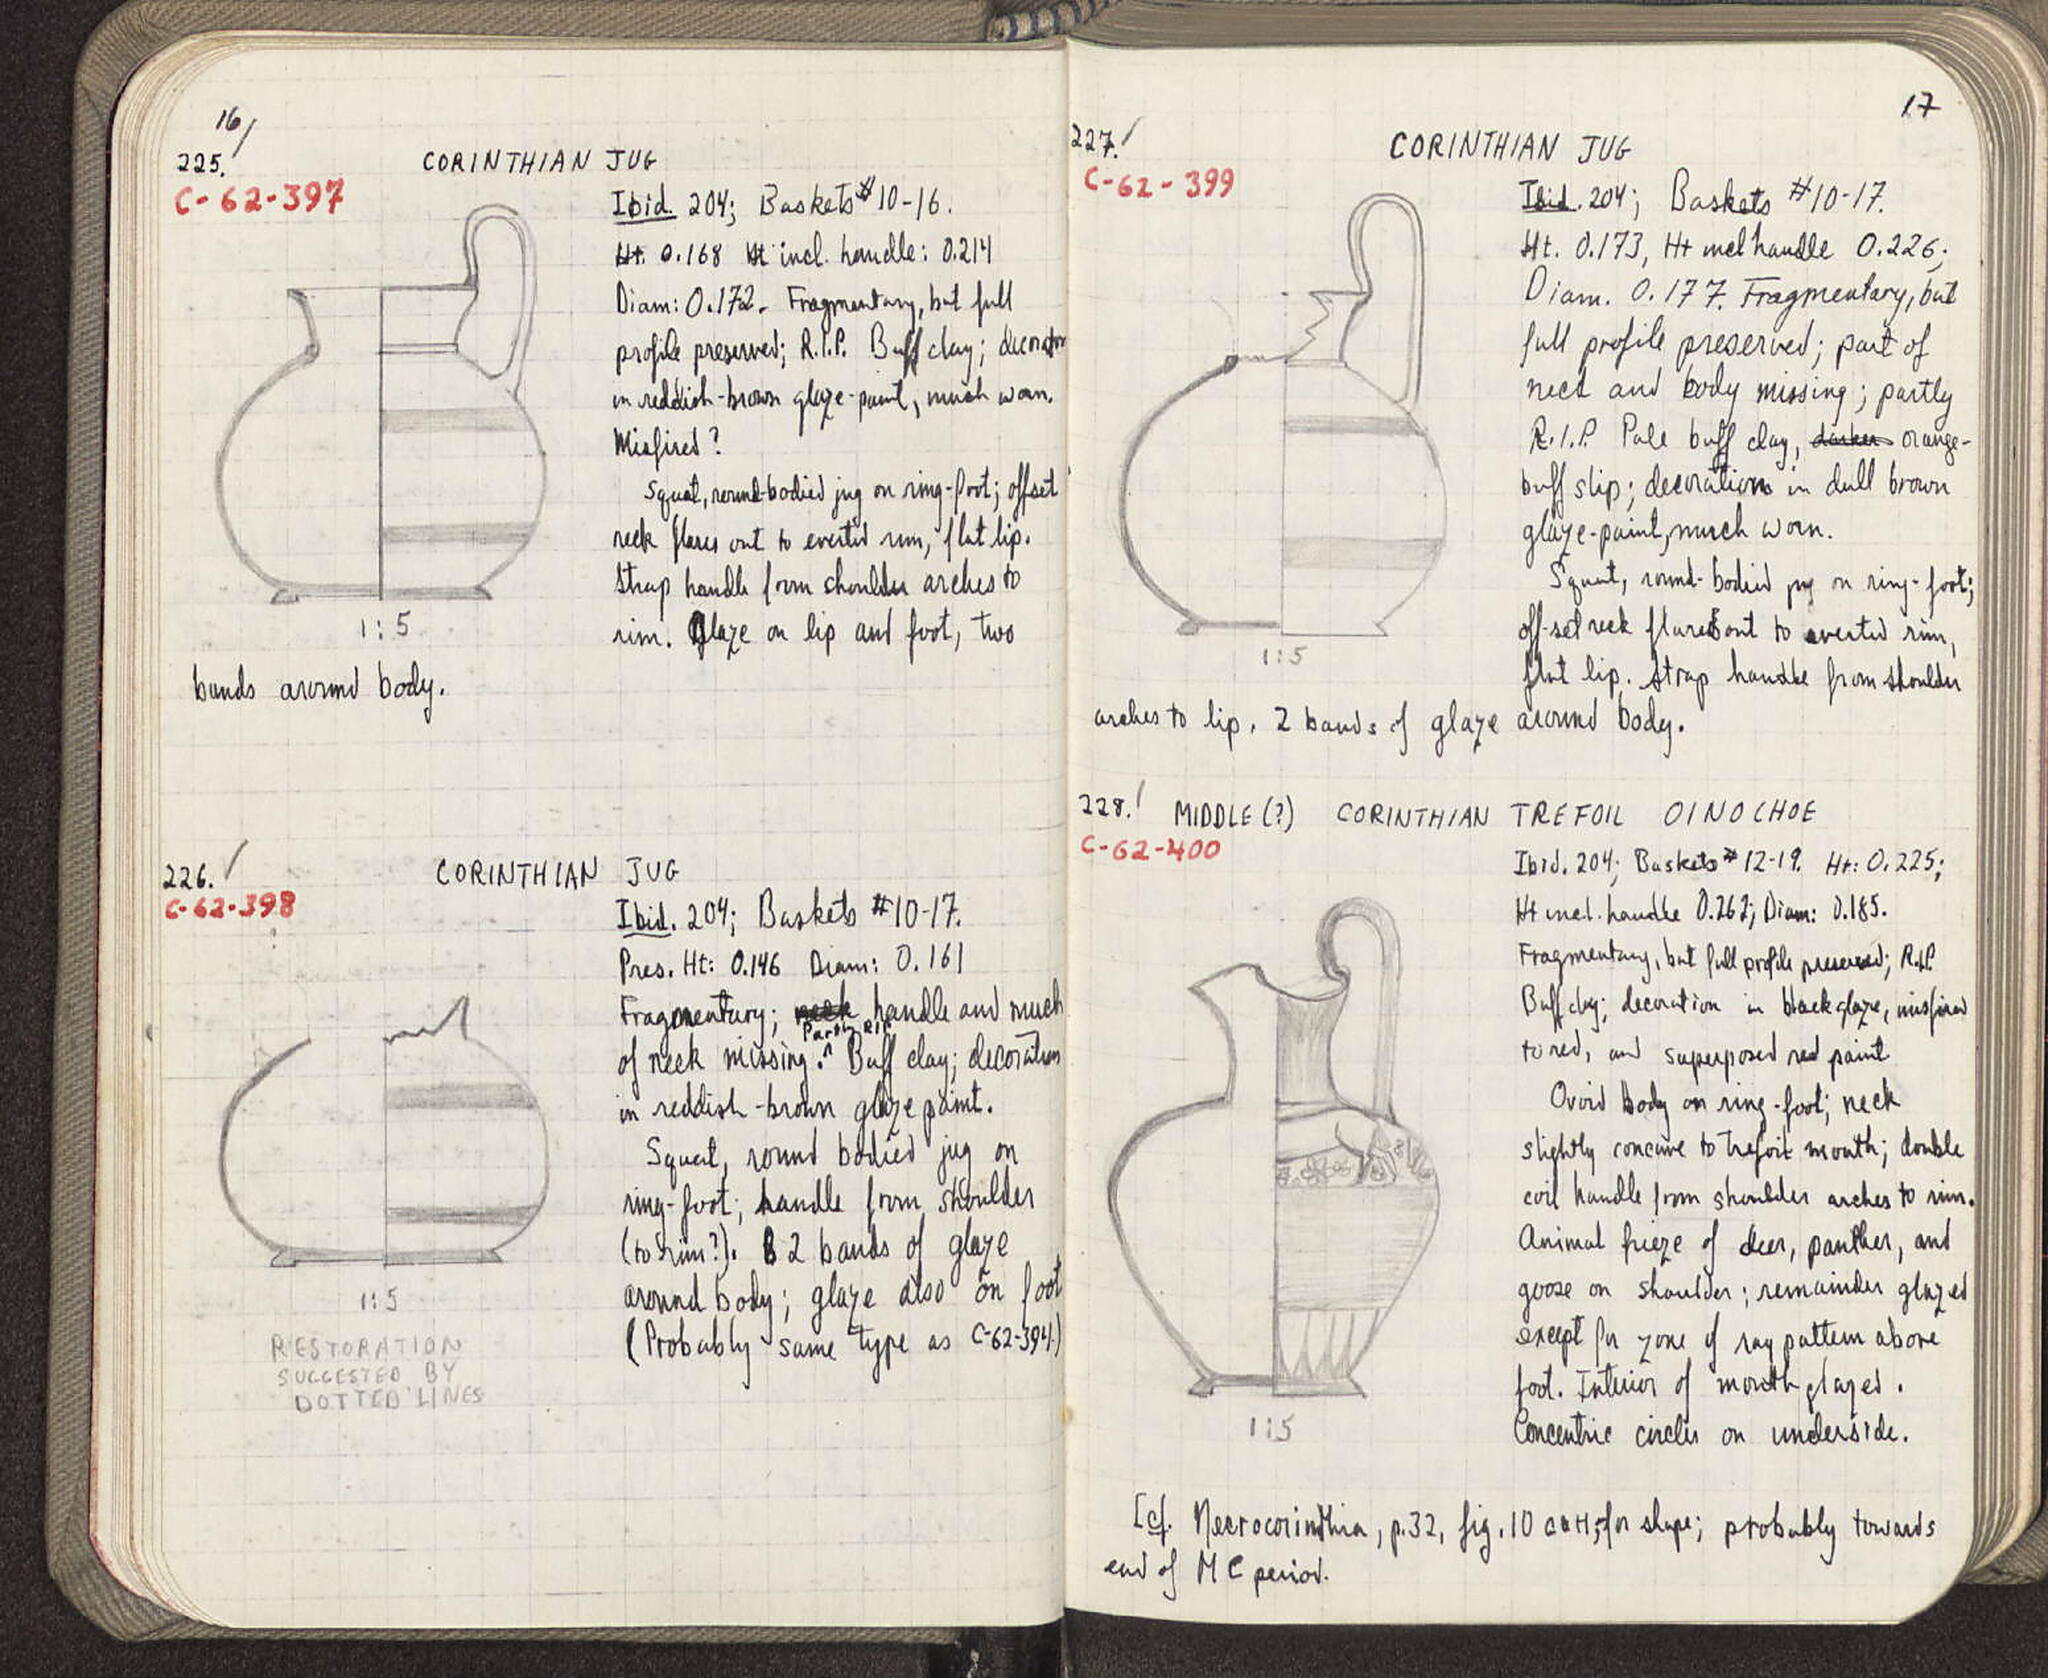 16
225.
CORINTHIAN JUG
C-62-397
Ibid. 204; Baskets #10-16.
Ht. 0.168 Ht incl. handle: 0.214
Diam: 0.172. Fragmentary, but full
profile preserved; R.I.P. Buff clay; decoration
in reddish-brown glaze-paint, much worn.
Misfired?
Squat, round-bodied jug on ring-foot; offset
neck flares out to everted rim, flat lip.
Strap handle from shoulder arches to
rim. Glaze on lip and foot, two
1:5
bands around body.
226.
CORINTHIAN JUG
C-62-398
Ibid. 204; Baskets #10-17.
Pres. Ht: 0.146 Diam: 0.161
Fragmentary; neck handle and much
Partly RIP
of neck missing. ^ Buff clay; decoration
in reddish-brown glaze paint.
Squat, round bodied jug on
ring-foot; handle from shoulder
(to rim?). 2 bands of glaze
around body; glaze also on foot
(Probably same type as C-62-394.)
1:5
RESTORATION
SUGGESTED BY
DOTTED LINES
17
227.
CORINTHIAN JUG
C-62-399
Ibid. 204; Baskets #10-17.
Ht. 0.173, Ht incl handle 0.226;
Diam. 0.177. Fragmentary, but
full profile preserved; part of
neck and body missing; partly
R.I.P. Pale buff clay, darker orange-
buff slip; decoration in dull brown
glaze-paint, much worn.
Squat, round-bodied jug on ring-foot;
off-set neck flares out to everted rim,
flat lip. Strap handle from shoulder
1:5
arches to lip. 2 bands of glaze around body.
228.
MIDDLE(?) CORINTHIAN TREFOIL OINOCHOE
C-62-400
Ibid. 204; Baskets #12-19. Ht: 0.225;
Ht incl. handle 0.262; Diam: 0.185.
Fragmentary, but full profile preserved; R.I.P.
Buff clay; decoration in black glaze, misfired
to red, and superposed red paint
Ovoid body on ring-foot; neck
slightly concave to trefoil mouth; double
coil handle from shoulder arches to rim.
Animal frieze of deer, panther, and
goose on shoulder; remainder glazed
except for zone of ray pattern above
foot. Interior of mouth glazed.
Concentric circles on underside.
1:5
[cf. Necrocorinthia, p.32, fig. 10 for shape; probably towards
end of MC period.